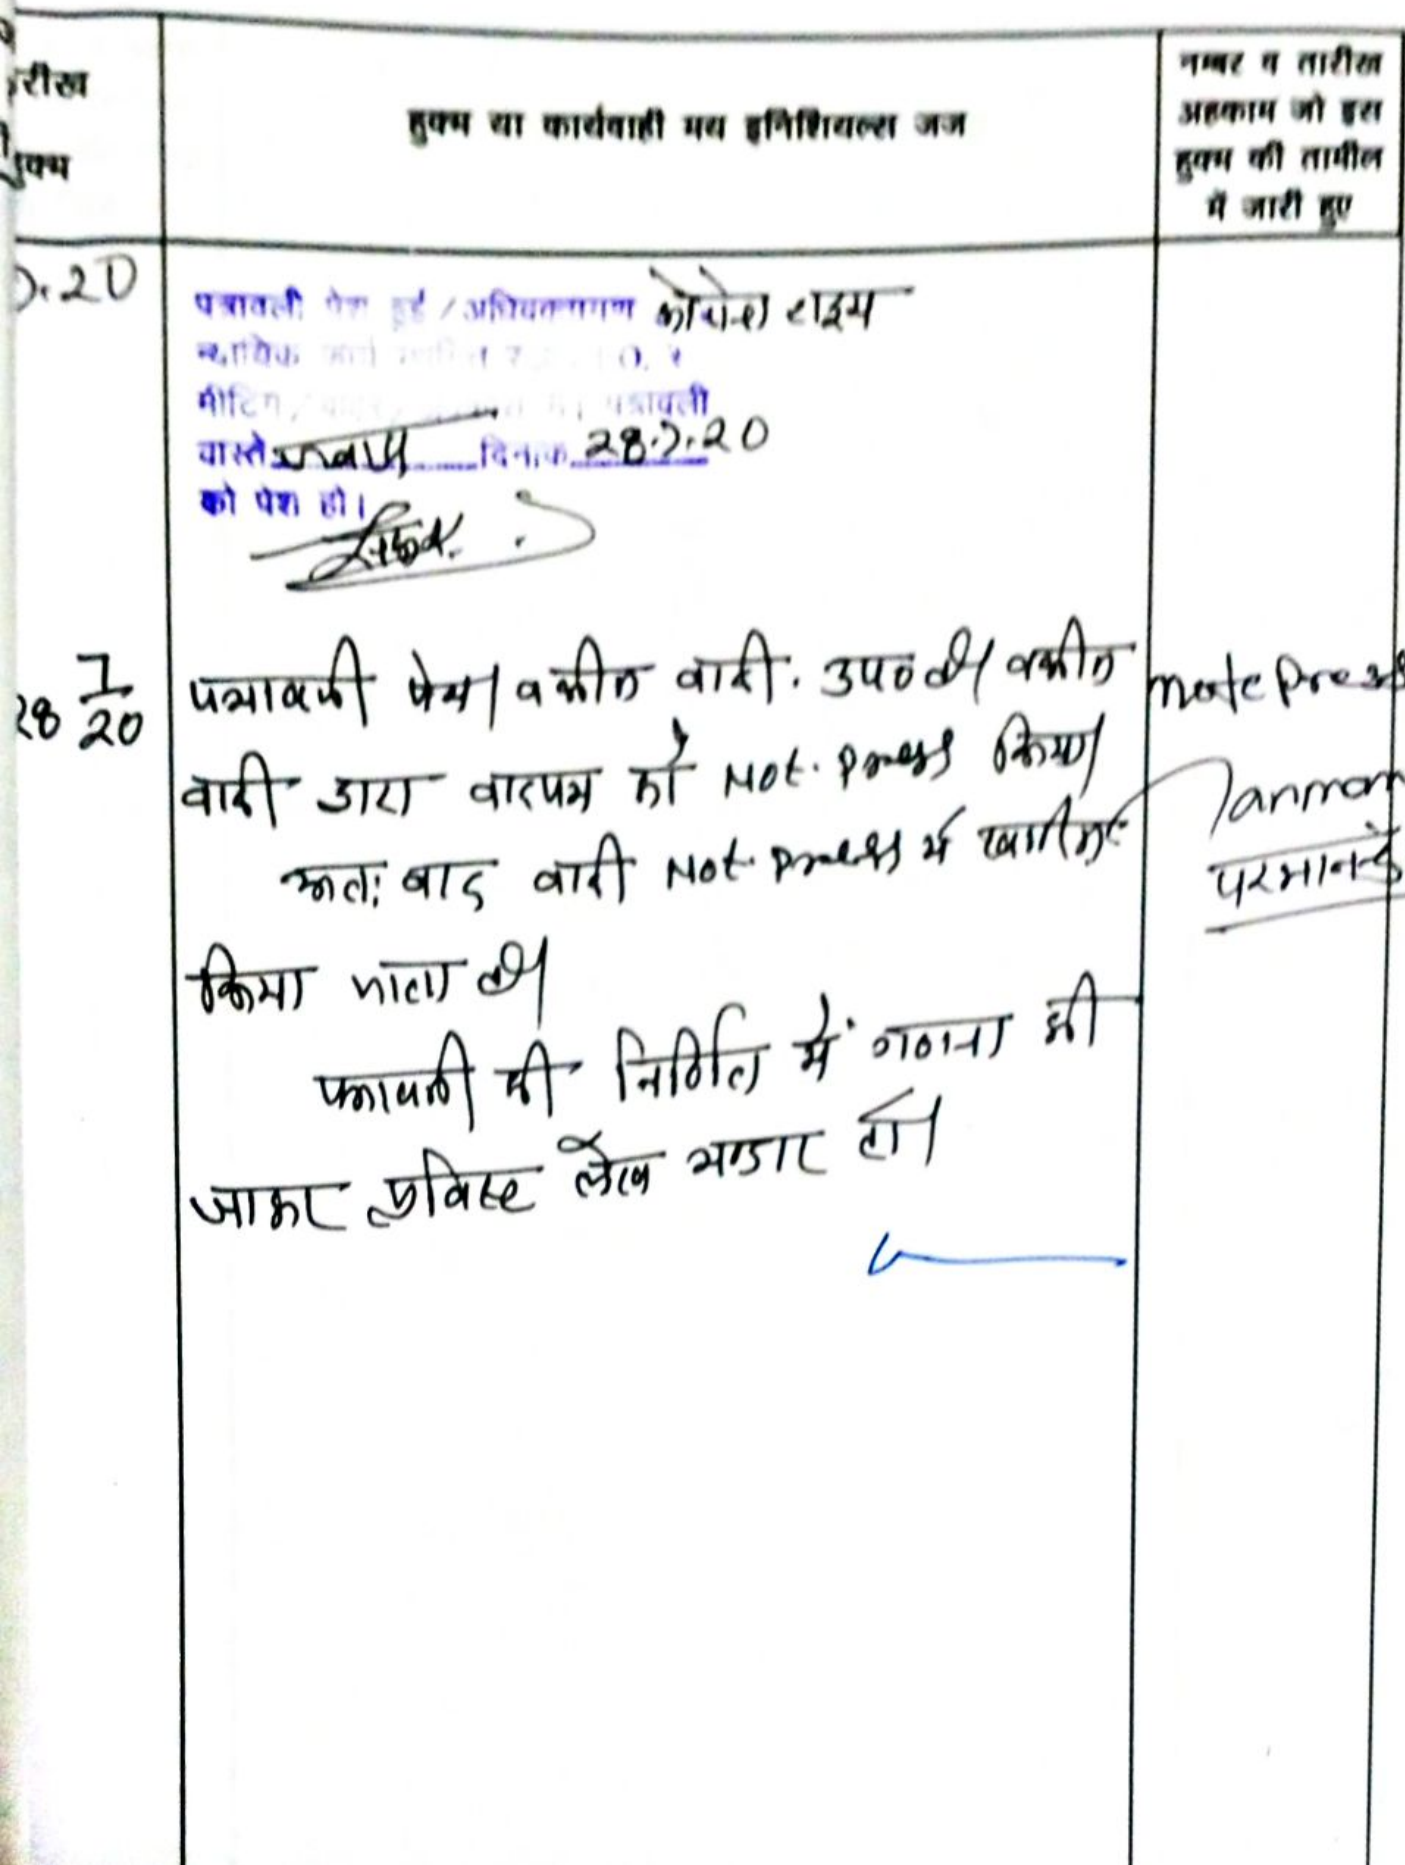 रीख
हुक्म
हुक्म या कार्यवाही मय इनिशियल्स जज
नम्बर व तारीख
अहकाम जो इस
हुक्म की तामील
में जारी हुए
7.20
पत्रावली पेश हुई / अधिवक्तागण कोरोना टाइम
न्यायिक कार्य
मीटिंग, पत्रावली
वास्ते जवाब दिनांक 28.7.20
को पेश हो।
28 7/20
पत्रावली पेश। वकील वादी. उप० है। वकील
वादी द्वारा वादपत्र को Not. Press किया।
अतः वाद वादी Not. Press में खारीज
किया जाता है।
पत्रावली की निर्णित में गणना की
जाकर प्रविष्ट लेख भण्डार हो।
note Press
परमानन्द